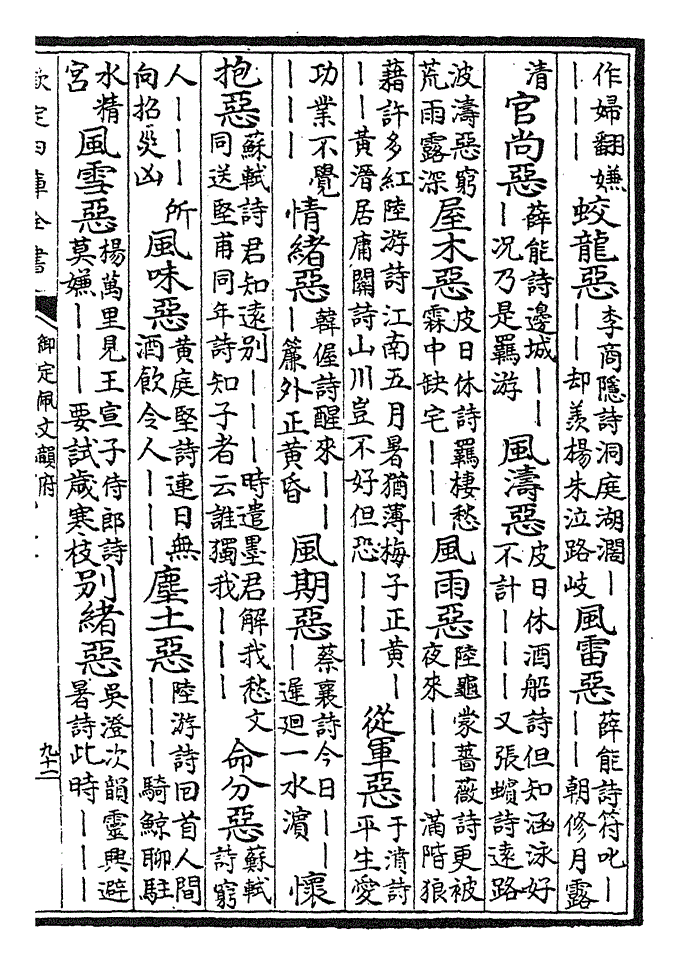 作婦翻嫌｜｜｜ 蛟龍惡 李商隱詩洞庭湖濶｜｜｜却羨楊朱泣路岐 風雷惡 薛能詩符叱｜｜｜朝修月露
清 官尚惡 薛能詩邊城｜｜｜况乃是羈游 風濤惡 皮日休酒船詩但知涵泳好不計｜｜｜又張蠙詩遠路
波濤惡窮荒雨露深 屋木惡 皮日休詩羈棲愁霖中缺宅｜｜｜ 風雨惡 陸龜蒙薔薇詩更被夜來｜｜｜滿階狼
藉許多紅陸游詩江南五月暑猶薄梅子正黃｜｜｜黃溍居庸關詩山川豈不好但恐｜｜｜ 從軍惡 于濆詩平生愛
功業不覺｜｜｜ 情緒惡 韓偓詩醒來｜｜｜簾外正黃昏 風期惡 蔡襄詩今日｜｜｜遲迴一水濵 懷
抱惡 蘇軾詩君知遠別｜｜｜時遣墨君解我愁文同送堅甫同年詩知子者云誰獨我｜｜｜ 命分惡 蘇軾詩窮
人｜｜｜所向招災凶 風味惡 黃庭堅詩連日無酒飲令人｜｜｜ 塵土惡 陸游詩回首人間｜｜｜騎鯨聊駐
水精宮 風雪惡 楊萬里見王宣子侍郎詩莫嫌｜｜｜要試歲寒枝 別緒惡 吳澄次韻靈興避暑詩此時｜｜｜
欽定四庫全書 御定佩文韻府 九十二